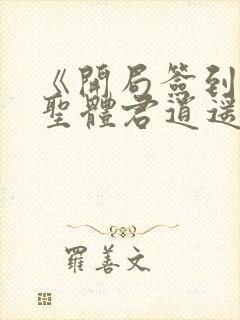 《開局簽到
聖體君逍遥
羅善文